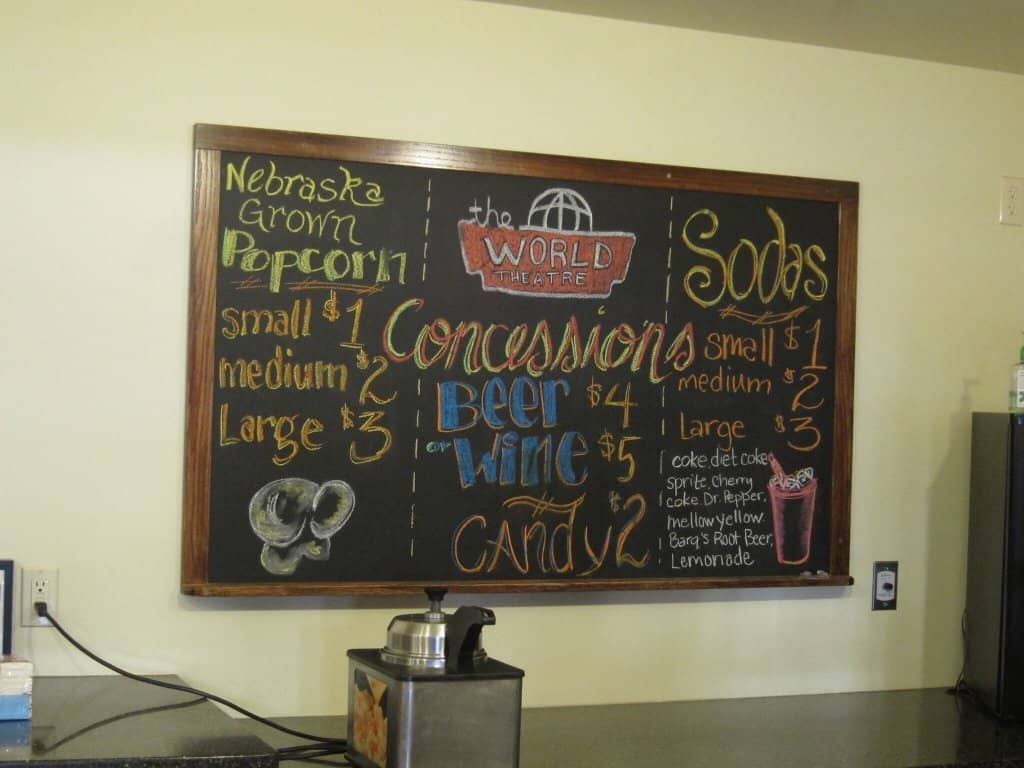 Nebraska
Grown
Popcorn
small $1
medium $2
Large $3
the
WORLD
THEATRE
Concessions
Beer $4
or Wine $5
CANDY $2
Sodas
small $1
medium $2
Large $3
coke, diet coke
sprite, Cherry
coke, Dr. Pepper,
mellow yellow.
Barq's Root Beer,
Lemonade